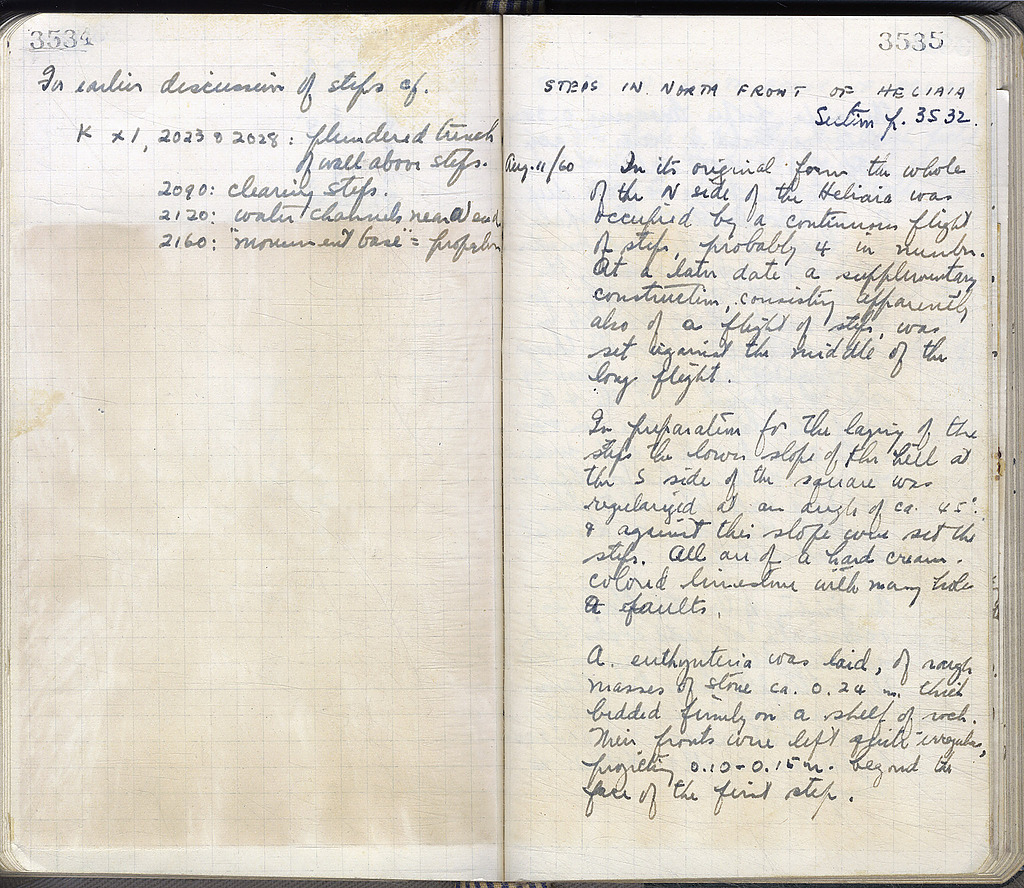 3534
For earlier discussion of steps cf.
K XI, 2023 & 2028: plundered trench
of wall above steps.
2090: clearing steps.
2120: water channels near W end
2160: "monument base" = propylon
3535
STEPS IN NORTH FRONT OF HELIAIA
Section p. 3532.
Aug. 11/60 In its original form the whole
of the N side of the Heliaia was
occupied by a continuous flight
of steps, probably 4 in number.
At a later date a supplementary
construction, consisting apparently
also of a flight of steps, was
set against the middle of the
long flight.
In preparation for the laying of the
steps the lower slope of the hill at
the S side of the square was
regularized at an angle of ca. 45°
& against this slope were set the
steps. All are of a hard cream-
colored limestone with many holes
& faults.
A euthynteria was laid, of rough
masses of stone ca. 0.24 m. thick
bedded firmly on a shelf of rock.
Their fronts were left quite irregular,
projecting 0.10-0.15 m. beyond the
face of the first step.